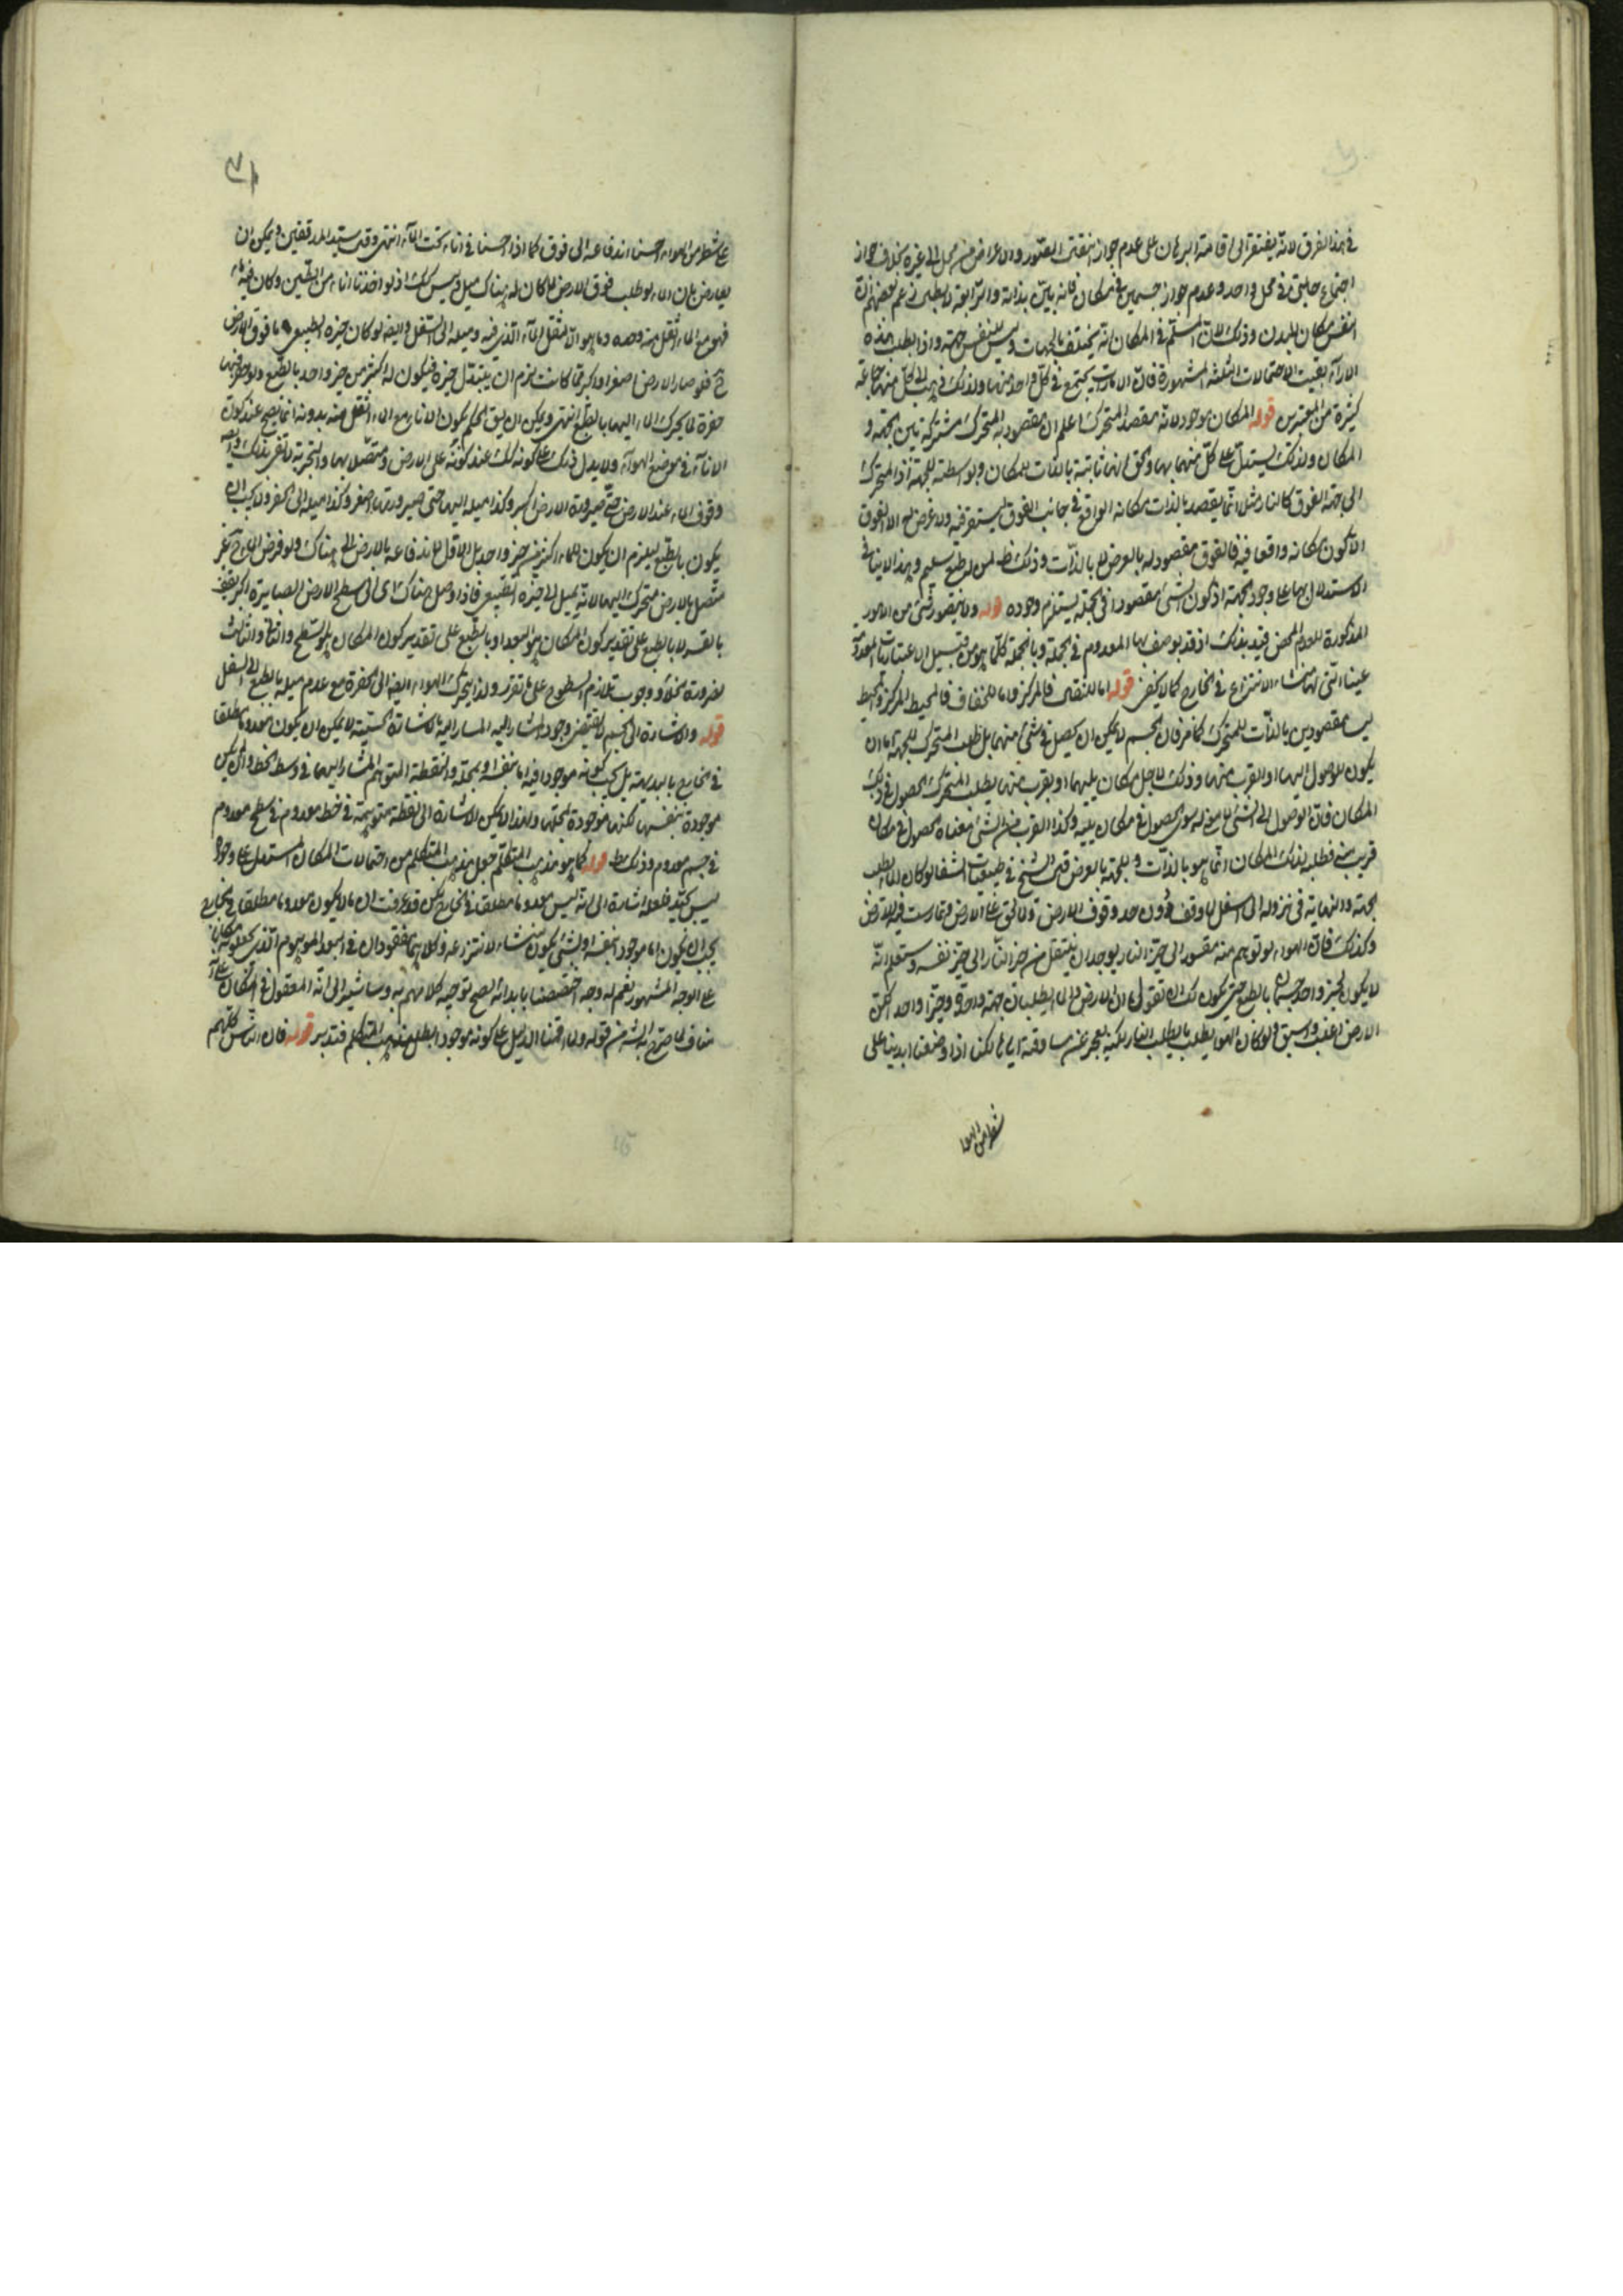 في هذا الفرق لانه يفتقر الى اقامة البرهان على عدم جواز انتقال الصور والاعراض من محل الى غيره بخلاف جواز
اجتماع حالين في محل واحد وعدم جواز جسمين في مكان فانه بين بذاته والرابعة لا يطلبن زعم بعضهم ان
النفس مكان للبدن وذلك لان المسلم في المكان انه يختلف بالجهات وليس للنفس جهة واذا بطلت هذه
الآراء بقيت الاحتمالات الثلثة المشهورة فان الامارات يجتمع في كل واحد منها ولذلك ذهب الى كل منها جماعة
كثيرة من المعتبرين قوله المكان موجود لانه مقصد المتحرك اعلم ان مقصودية المتحرك مشتركة بين الجهة و
المكان ولذلك يستدل على كل منهما بها والحق انها ثابتة بالذات للمكان وبواسطته للجهة اذ المتحرك
الى جهة الفوق كالنار مثلا انما يقصد بالذات مكانه الواقع في جانب الفوق ليستقر فيه ولا غرض له الى الفوق
الا كون مكانه واقعا فيه فالفوق مقصود له بالعرض لا بالذات وذلك ظ لمن له طبع سليم وهذا لا ينافي
الاستدلال بها على وجود الجهة اذ كون الشئ مقصودا في الجملة يستلزم وجوده قوله ولا يتصور شئ من الامور
المذكورة للعدم المحض قيد بذلك اذ قد يوصف بها المعدوم في الجملة وبالجملة كلما هو من قبيل الاعتباريات المعدومة
عينا التي لها منشاء الانتزاع في الخارج كما لا يخفى قوله اما للثقال فالمركز واما للخفاف فالمحيط المركز والمحيط
ليسا مقصودين بالذات للمتحرك كما مر فان الجسم لا يمكن ان يحصل في شئ منهما بل طلب المتحرك للجهة اما ان
يكون للوصول اليها او القرب منها وذلك لاجل مكان يليها او يقرب منها يطلب المتحرك الحصول في ذلك
المكان فان الوصول الى الشئ لا معنى له سوى الحصول في مكان يليه وكذا القرب من الشئ معناه الحصول في مكان
قريب منه فطلبه لذلك المكان انما هو بالذات وللجهة بالعرض قال الشيخ في طبيعيات الشفا لو كان الماء يطلب
الجهة والنهاية في نزوله الى اسفل لما وقف دون حد وقوف الارض ولا طفى على الارض ولا رست فيه الارض
وكذلك فان الهواء لو توهم منه مقسور الى حيز النار يوجد ان ينتقل من حيز النار الى حيز نفسه وستعلم انه
لا يكون لحيز واحد جسمان بالطبع حتى يكون لك ان تقول ان الارض والماء يطلبان جهة واحدة وحيزا واحدا لكن
الارض اغلب واسبق ولو كان الهواء يطلب ما يطلب النار لكنه يعجز عن مساوقته اياها لكنا اذا وضعنا ايدينا على
شطر من الهوا
على شطر من الهواء احسسنا اندفاعه الى فوق كما اذا احسسنا في اناء تحت الماء انتهى وقال سيد المدققين ويمكن ان
يعارض بان الماء لو طلب فوق الارض لكان له هناك ميل وليس كذلك اذ لو اخذنا اناء من الطين وكان فيه ماء
فهو مع الماء اثقل منه وحده وما هو الا لثقل الماء الذي فيه وميله الى السفل وايضا لو كان حيزه الطبيعي ما فوق الارض
ح فلو صار الارض اصغر او اكبر مما كانت لزم ان يتبدل حيزه فيكون له اكثر من حيز واحد بالطبع ولو حفر فيها
حفرة لا يتحرك الماء اليها بالطبع انتهى ويمكن ان يقال الحكم بكون الاناء مع الماء اثقل منه بدونه انما يصح عند كون
الاناء في موضع الهواء ولا يدل ذلك على كونه كذلك عند كونه على الارض ومتصلا بها والتجربة لا تفي بذلك وايضا
وقوف الماء عند الارض حتى صيرورة الارض اكبر وكذا ميله اليها حتى صيرورتها اصغر وكذا ميله الى الحفرة لا يجب ان
يكون بالطبع ليلزم ان يكون للماء اكثر من حيز واحد بل الاول لاندفاعه بالارض الى هناك ولو فرض الماء ح غير
متصل بالارض لتحرك اليها لانه يميل الى حيزه الطبيعي فاذا وصل هناك اى الى سطح الارض الصايرة اكبر يقف
بالقسر لا بالطبع على تقدير كون المكان هو البعد او بالطبع على تقدير كون المكان هو السطح والثاني والثالث
لضرورة الخلاء ووجوب تلازم السطوح على ما تقرر ولذا يتحرك الهواء ايضا الى الحفرة مع عدم ميله بالطبع الى السفل
قوله والاشارة الى الجسم لا يقتضى وجود المشار اليه المشار اليه بالاشارة الحسية لا يمكن ان يكون معدوما مطلقا
في الخارج بالبديهة بل يجب كونه موجودا فيه اما بنفسه او بمحله والنقطة المتوهم المشار اليها في وسط الخط وان لم يكن
موجودة بنفسها لكنها موجودة بمحلها ولهذا لا يمكن الاشارة الى نقطة متوهمة في خط معدوم في سطح معدوم
في جسم معدوم وذلك ظ قوله كما هو مذهب المتكلم جعل مذهب المتكلم من احتمالات المكان المستدل على وجوده
ليس بجيد فلعله اشارة الى انه ليس معدوما مطلقا في الخارج لكن قد عرفت ان ما لا يكون معدوما مطلقا في الخارج
يجب ان يكون اما موجودا بنفسه او بشئ يكون منشاء لانتزاعه وكلاهما مفقودان في البعد الموهوم الذي يجعلونه مكانا
على الوجه المشهور نعم له وجه اختصصنا بابدائه يصح توجيه كلامهم به وسنشير الى انه المعقول في المكان على انه
مناف لما صرح به الشه من قوله ولما اقمنا الدليل على كونه موجودا بطل مذهب المتكلم فتدبر قوله فان الناس كلهم